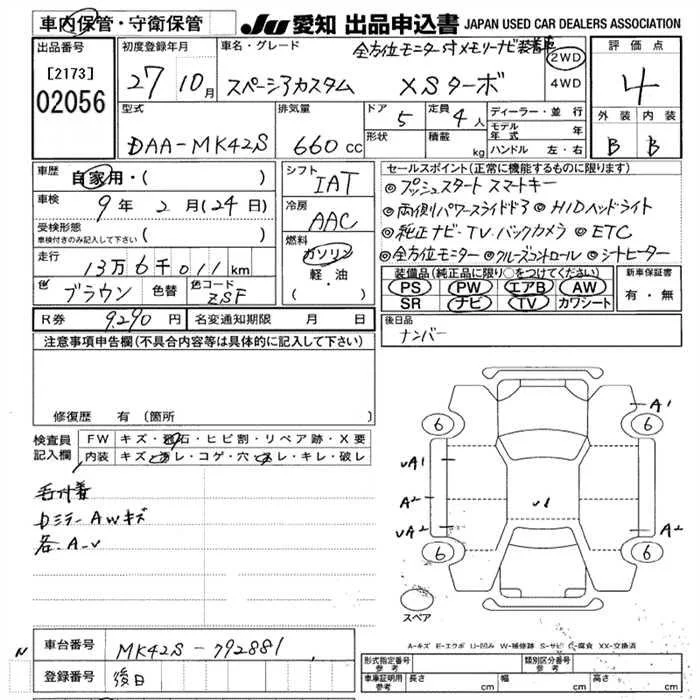 車内保管・守衛保管
JU 愛知 出品申込書 JAPAN USED CAR DEALERS ASSOCIATION
出品番号
[2173]
02056
初度登録年月
27 10月
車名・グレード
全方位モニター付メモリーナビ装着車
スペーシアカスタム XSターボ
2WD
4WD
評価点
4
外装 内装
B B
型式
DAA-MK42S
排気量
660 CC
ドア 5
形状
定員 4人
積載 kg
ディーラー・並行
モデル年式 年
ハンドル 左・右
車歴
自家用・( )
車検
9年 2月(24日)
受検形態
車検付きのみ記入して下さい ( )
走行
13万6千011km
色 ブラウン 色替 色コード ZSF
シフト
IAT
冷房
AAC
燃料
ガソリン
軽・油
( )
セールスポイント(正常に機能するものに限ります)
◎プッシュスタート スマートキー
◎両側パワースライドドア ◎HIDヘッドライト
◎純正ナビ・TV・バックカメラ ◎ETC
◎全方位モニター ◎クルーズコントロール ◎シートヒーター
装備品(純正品に限り○をつけてください)
PS PW エアB AW
SR ナビ TV カワシート
新車保証書
有・無
R券 9,290円 名変通知期限 月 日
後日品
ナンバー
注意事項申告欄(不具合内容等は具体的に記入して下さい)
修復歴 有(箇所
検査員記入欄
FW キズ・飛石・ヒビ割・リペア跡・X要
内装 キズ・汚レ・コゲ・穴・スレ・キレ・破レ
毛付着
Dミラー AWキズ
各 A-U
6 6
A1
UA1
A2
U1
UA2
A2
6 6
スペア
A-キズ E-エクボ U-凹み W-補修跡 S-サビ C-腐食 XX-交換済
車台番号 MK42S-792881
N
登録番号 後日
形式指定番号 参考
類別区分番号 参考
車庫証明用 参考 長さ cm 幅 cm 高さ cm